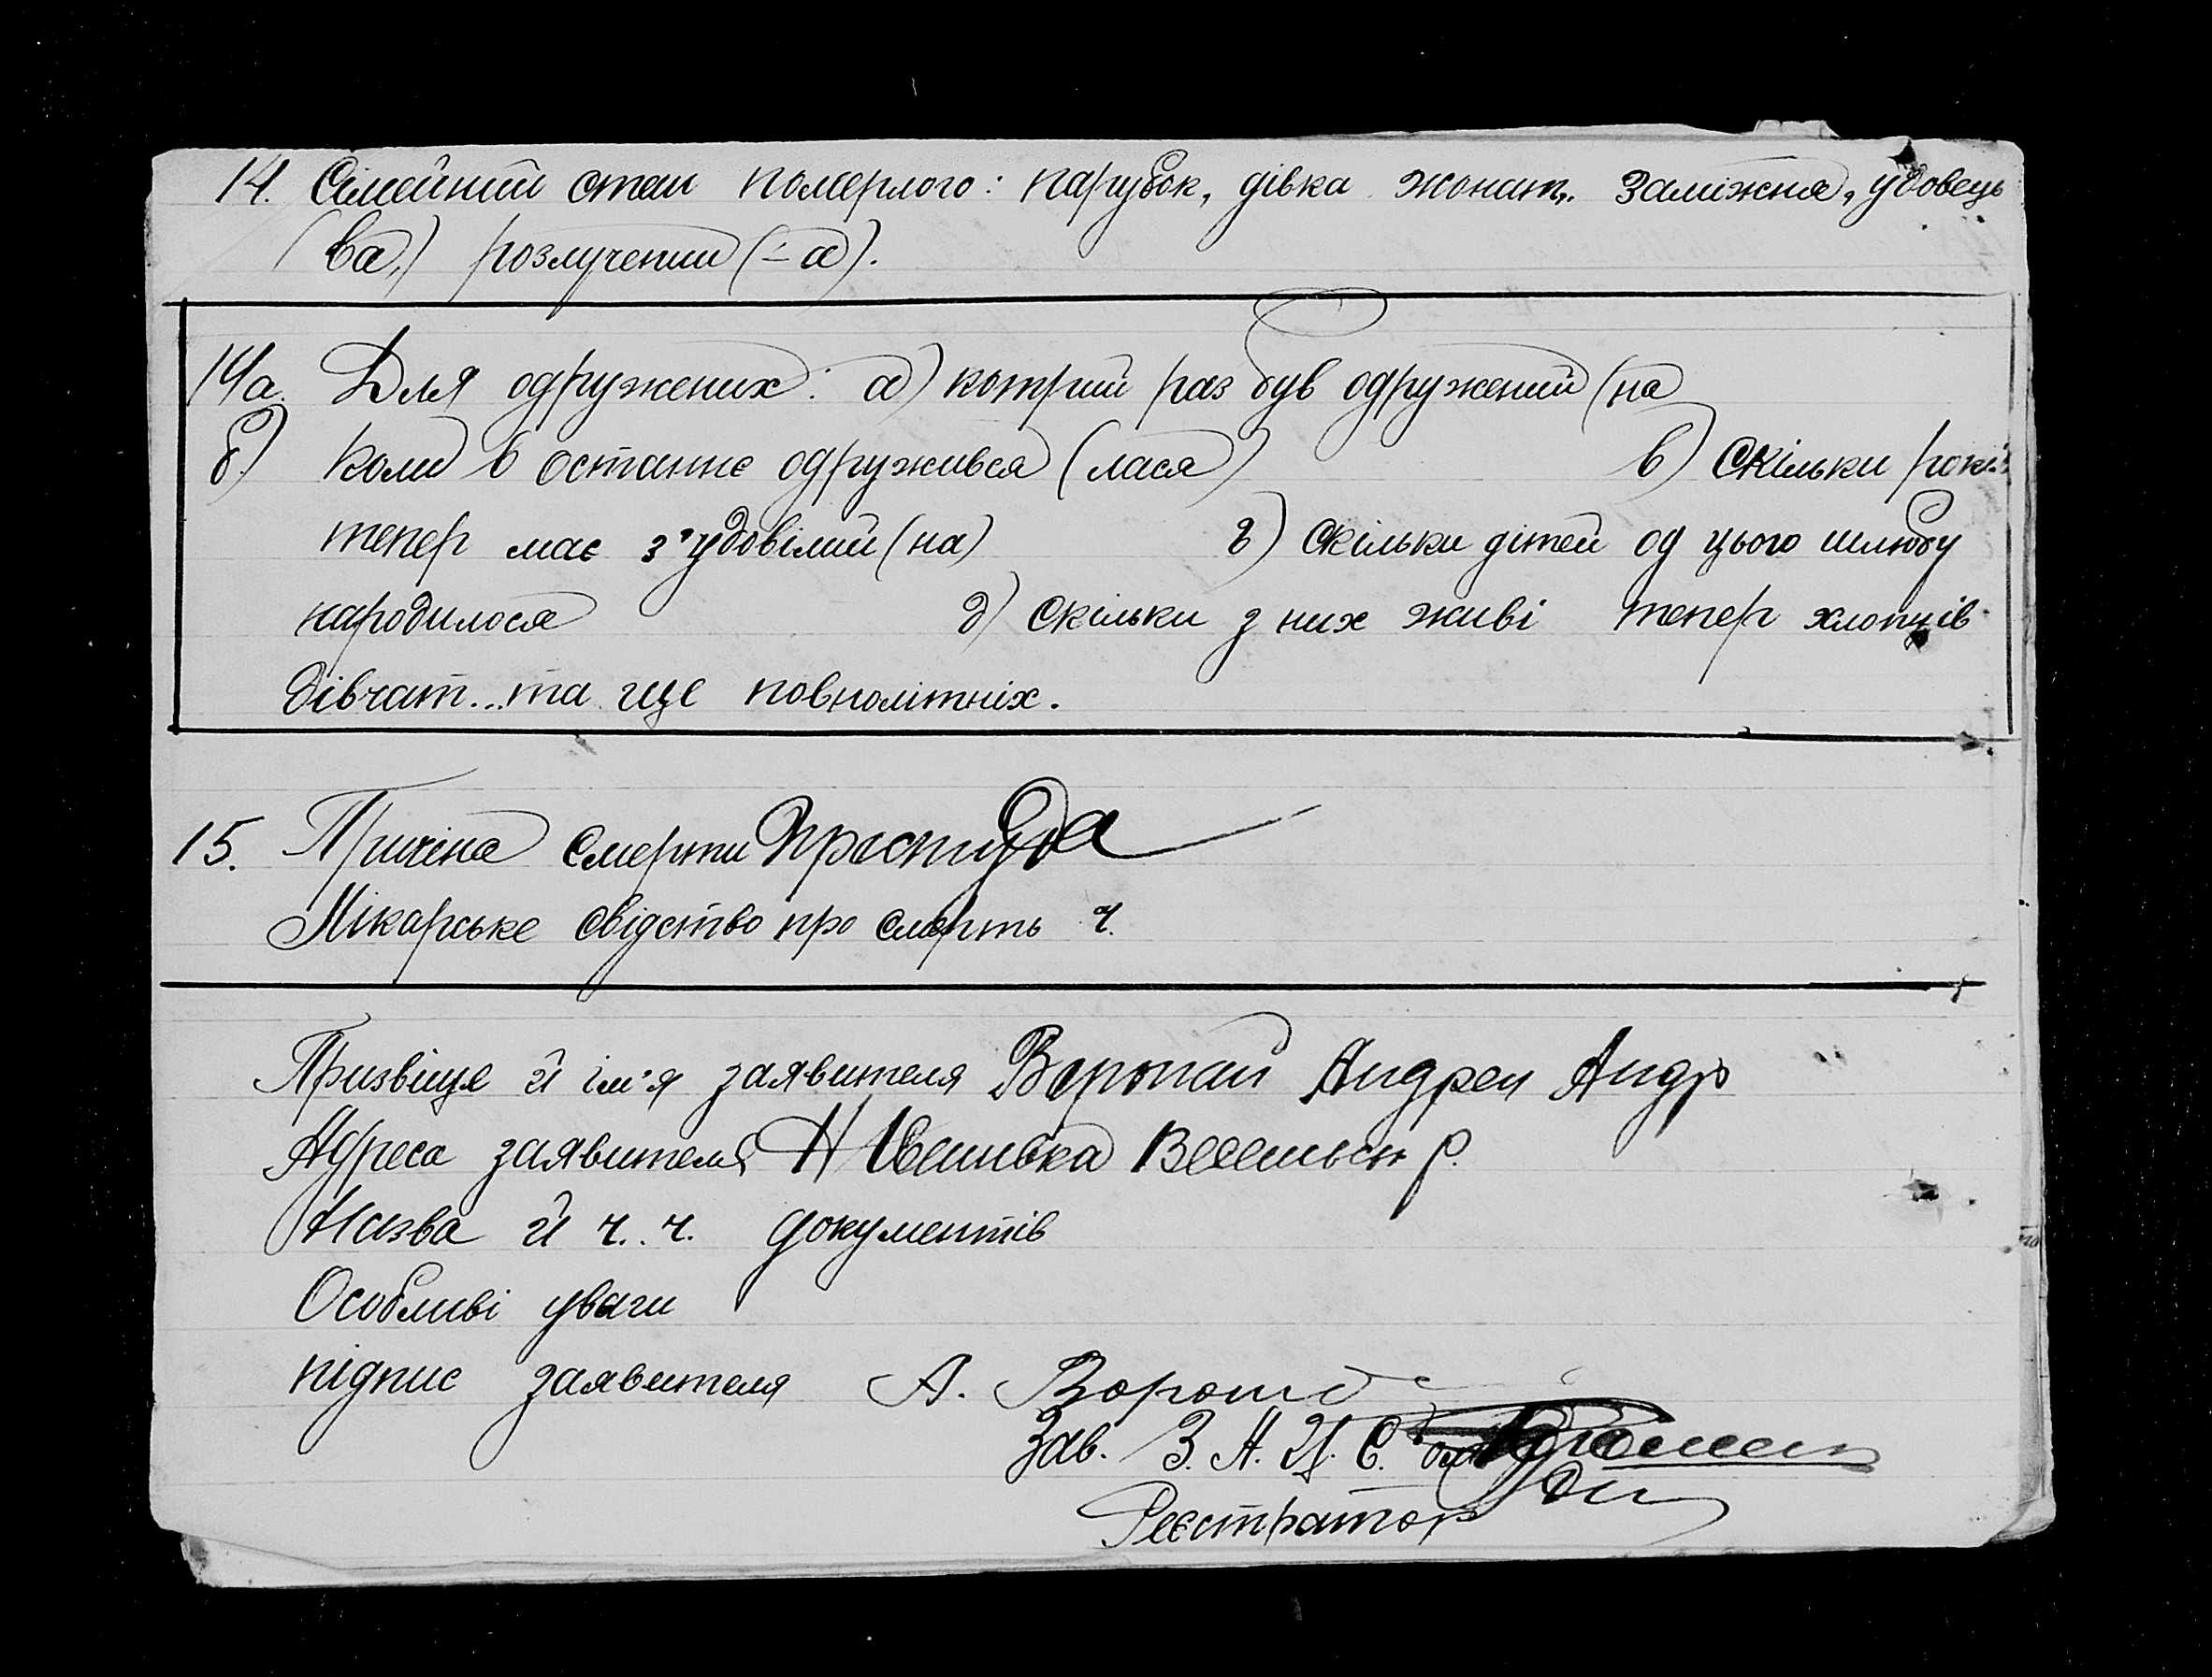 14. Сімейний стан померлого: парубок, дівка жонат., заміжня, удовець
(ва,) розлучений (-а).
14а. Для одружених: а) котрий раз був одружений (на
б) коли в останнє одружився (лася) в) Скільки років
тепер має з'удовілий (на) г) скільки дітей од цього шлюбу
народилося д) скільки з них живі тепер хлопців
дівчат... та ще повнолітніх.
15. Причіна смерти простуда
Лікарське свідство про смерть ч.
Призвіще й ім'я заявителя Веропай Андрей Андр
Адреса заявителя Н Ивановка Весельск р.
Назва й ч. ч. документів
Особливі уваги
підпис заявителя А. Воропай
Зав. З. А. Ц. С.
Реєстратор